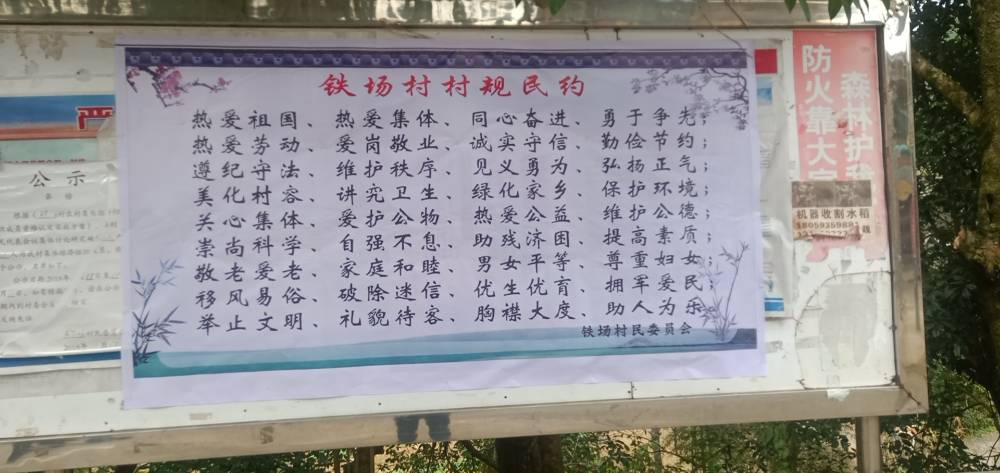 铁场村村规民约
热爱祖国、热爱集体、同心奋进、勇于争先；
热爱劳动、爱岗敬业、诚实守信、勤俭节约；
遵纪守法、维护秩序、见义勇为、弘扬正气；
美化村容、讲究卫生、绿化家乡、保护环境；
关心集体、爱护公物、热爱公益、维护公德；
崇尚科学、自强不息、助残济困、提高素质；
敬老爱老、家庭和睦、男女平等、尊重妇女；
移风易俗、破除迷信、优生优育、拥军爱民；
举止文明、礼貌待客、胸襟大度、助人为乐
铁场村民委员会
公示
防火靠大
森林护
机器收割水稻